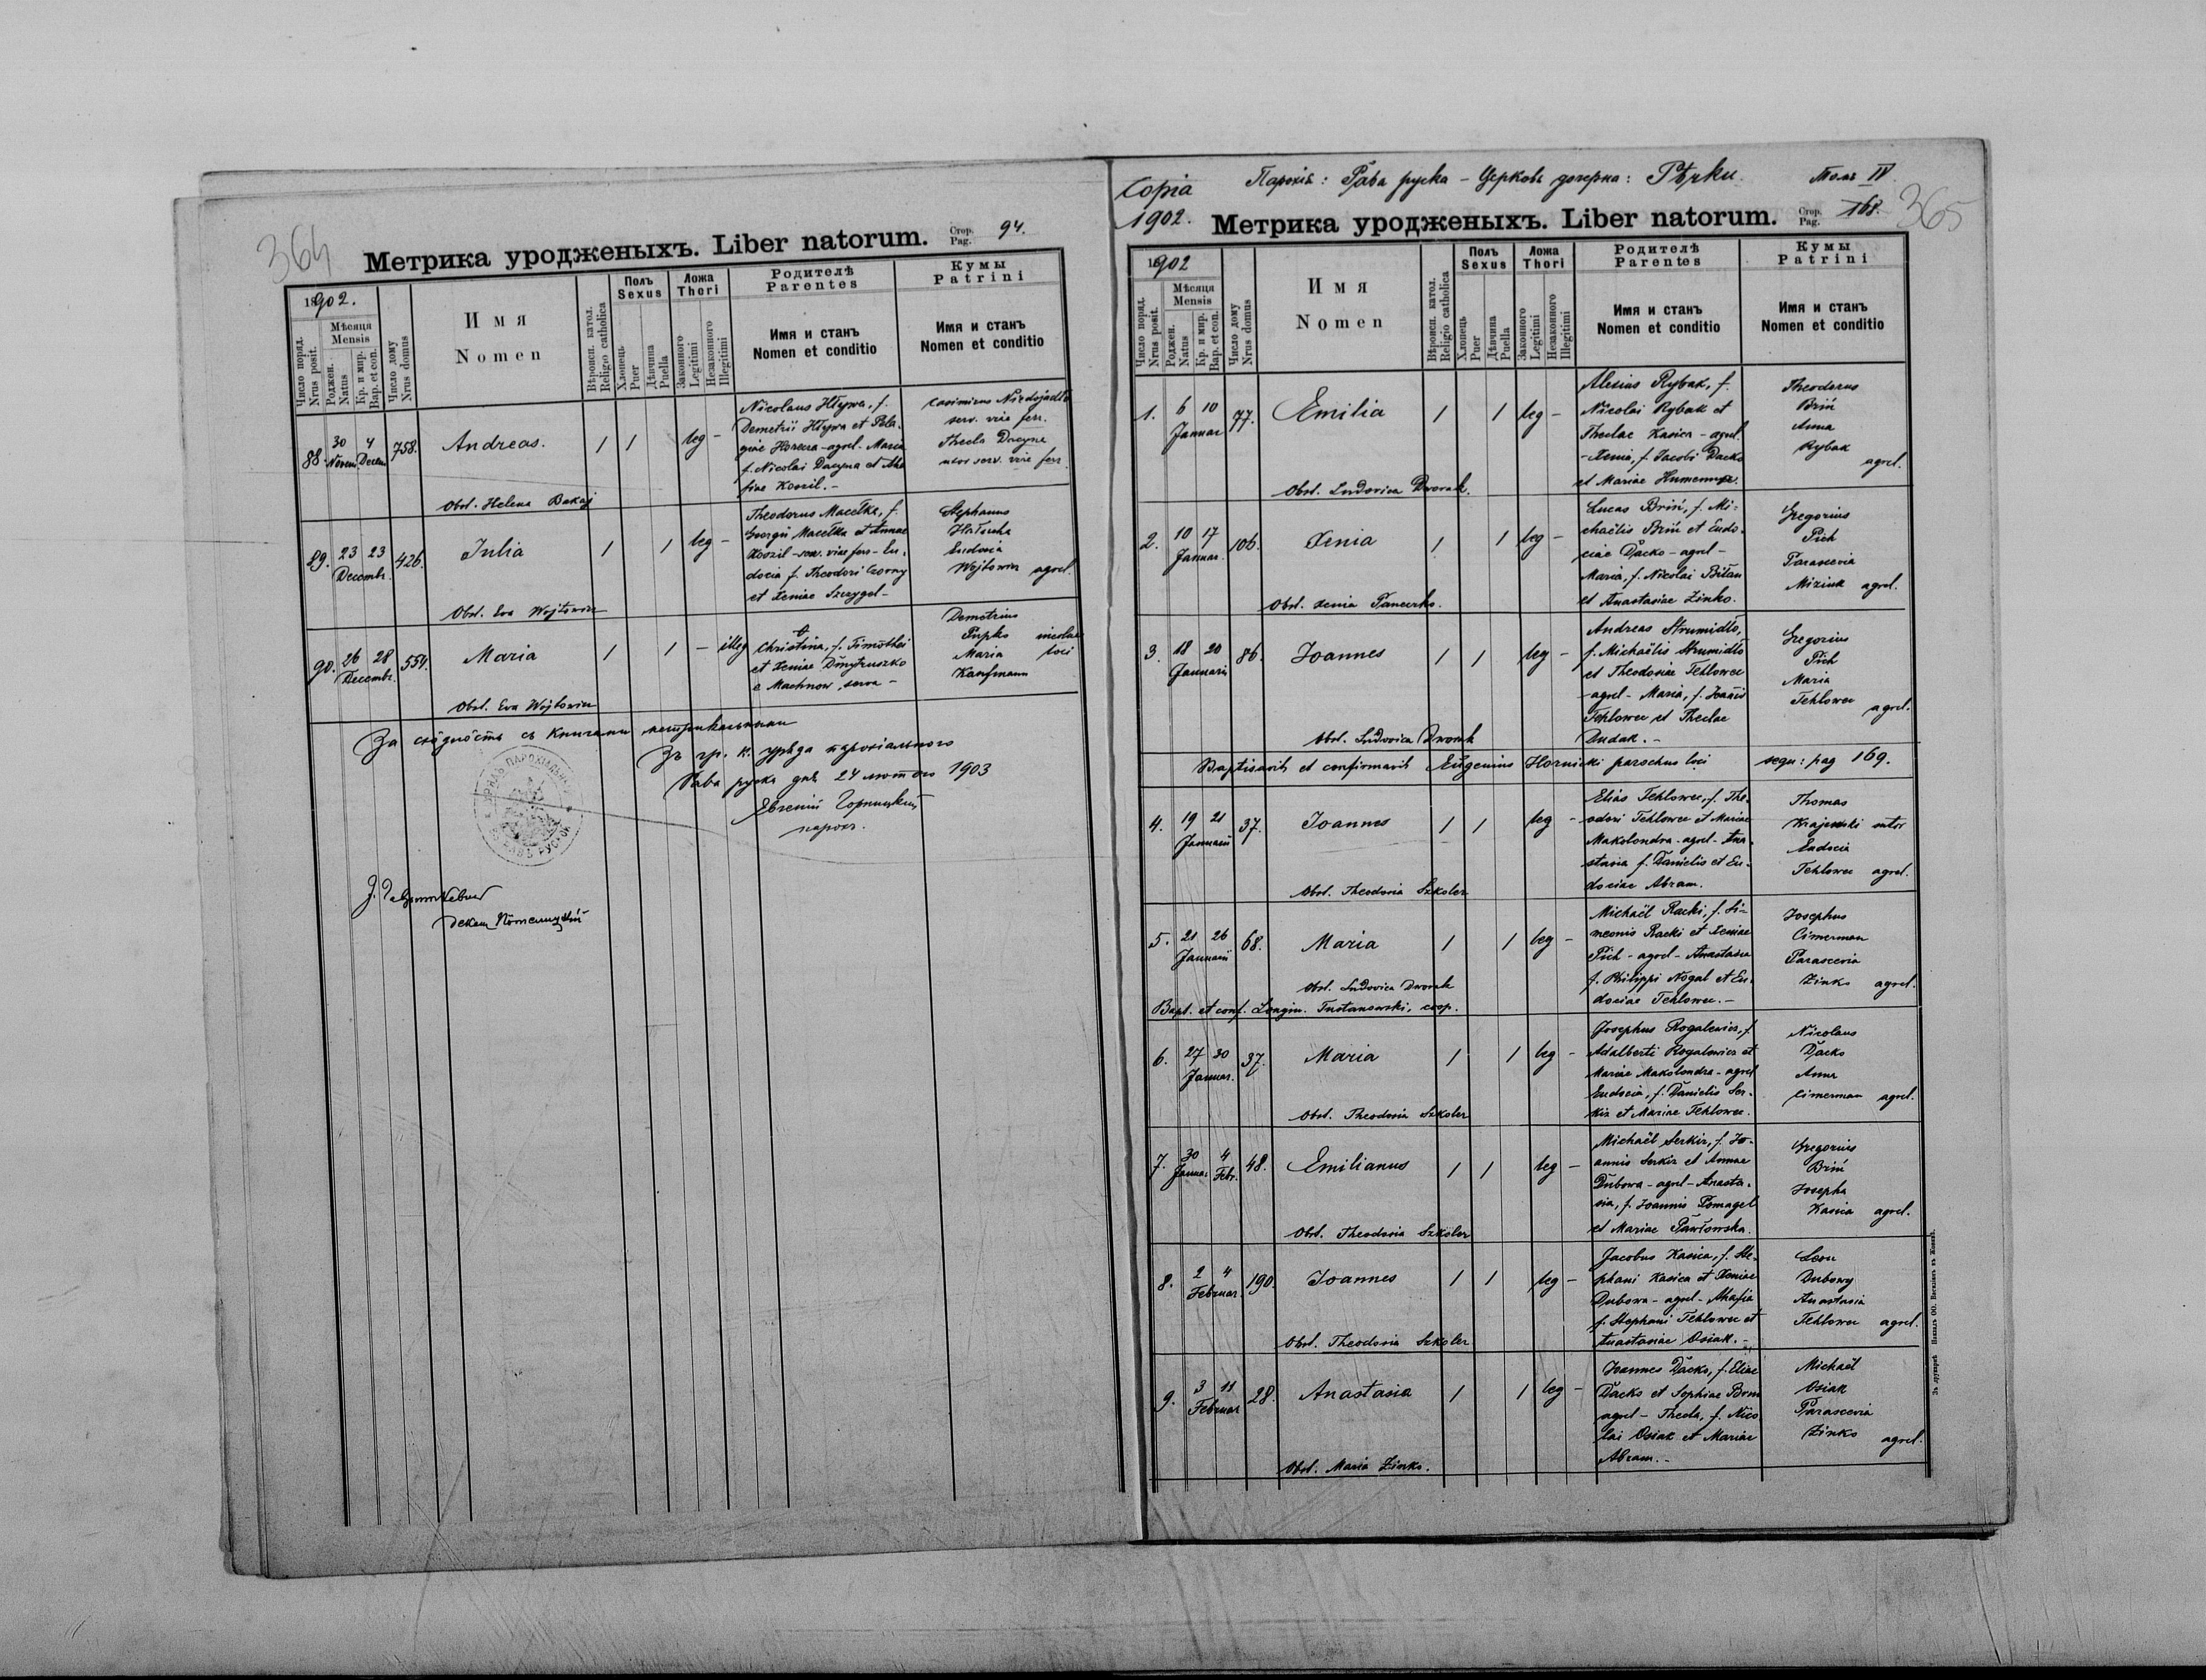 364
Метрика уродженыхъ. Liber natorum.
Стор. Pag. 94.
1902.
Число поряд. Nrus posit.
Мѣсяца Mensis
Роджен. Natus
Кр. и мир. Bap. et con.
Число дому Nrus domus
Имя
Nomen
Вѣроисп. катол. Religio catholica
Полъ Sexus
Хлопець Puer
Дѣвчина Puella
Ложа Thori
Законного Legitimi
Незаконного Illegitimi
Родителѣ
Parentes
Имя и станъ
Nomen et conditio
Кумы
Patrini
Имя и станъ
Nomen et conditio
88. 30 Novem 4 Decem 758. Andreas. 1 1 leg -
Nicolaus Hływa, f.
Demetrii Hływa et Pela-
giae - agrel. Maria
f. Nicolai Dacyna et
Koszil. -
Casimirus
serv. viae ferr.
Thecla Dacyna
uxor serv. viae ferr
Obst. Helena Bakaj
89. 23 23 Decembr. 426. Julia 1 1 leg -
Theodorus Macełka, f.
Georgii Macełka et Annae
Koszil - serv. viae ferr - Eu-
docia f. Theodori Czorny
et Xeniae Szczygel -
Stephanus
Eudocia
Wojtowicz agrel.
Obst. Eva Wojtowicz
90. 26 28 Decembr. 554. Maria 1 1 - illeg
Christina, f. Timothei
et Xeniae Dmytruszko
e Machnow, serva -
Demetrius
Pupko incolae
Maria loci
Kaufmann
Obst. Eva Wojtowicz
За сходность съ книгами метрикальными
Зъ гр. к. уряда парохіального
Рава руска дня 24 лютого 1903
Евгеній Горницкій
парох.
декан
Copia
1902.
Парохія: Рава руска - Церковь дочерна: Рѣчки.
Томъ IV
365
Метрика уродженыхъ. Liber natorum.
Стор. Pag. 168.
1902
Число поряд. Nrus posit.
Мѣсяца Mensis
Роджен. Natus
Кр. и мир. Bap. et con.
Число дому Nrus domus
Имя
Nomen
Вѣроисп. катол. Religio catholica
Полъ Sexus
Хлопець Puer
Дѣвчина Puella
Ложа Thori
Законного Legitimi
Незаконного Illegitimi
Родителѣ
Parentes
Имя и станъ
Nomen et conditio
Кумы
Patrini
Имя и станъ
Nomen et conditio
1. 6 10 Januar 77. Emilia 1 1 leg -
Alexius Rybak, f.
Nicolai Rybak et
Theclae Kasica - agrel.
- Xenia, f. Jacobi Dacko
et Mariae
Theodorus
Briń
Anna
Rybak
agrel.
Obst. Ludovica Dworak.
2. 10 17 Januar. 106. Xenia 1 1 leg -
Lucas Briń, f. Mi-
chaëlis Briń et Eudo-
ciae Dacko - agrel -
Maria, f. Nicolai Biłan
et Anastasiae Zinko.
Gregorius
Pich
Parascevia
Miziuk agrel.
Obst. Xenia Paneczko.
3. 18 20 Januarii 86. Joannes 1 1 leg -
Andreas Strumidło,
f. Michaëlis Strumidło
et Theodosiae Tehlowec
- agrel - Maria, f. Joannis
Tehlowec et Theclae
Dudak. -
Gregorius
Pich
Maria
Tehlowec
agrel.
Obst. Ludovica Dworak
Baptisavit et confirmavit Eugenius Hornicki parochus loci sequ: pag 169.
4. 19 21 Januarii 37. Joannes 1 1 leg -
Elias Tehlowec, f. The-
odori Tehlowec et Mariae
Makolondra - agrel - Ana-
stasia f. Danielis et Eu-
dociae Abram.
Thomas
Krajewski sutor
Eudocia
Tehlowec agrel.
Obst. Theodosia Szkoler
5. 21 26 Januarii 68. Maria 1 1 leg -
Michaël Racki, f. Si-
meonis Racki et Xeniae
Pich - agrel - Anastasia
f. Philippi Nogal et Eu-
dociae Tehlowec. -
Josephus
Cimerman
Parascevia
Zinko agrel.
Obst. Ludovica Dworak
Bapt. et conf. Longin. Tustanowski, coop.
6. 27 30 Januar. 37. Maria 1 1 leg -
Josephus Rogalewicz, f.
Adalberti Rogalewicz et
Mariae Makolondra - agrel
Eudocia, f. Danielis Ser-
kiz et Mariae Tehlowec.
Nicolaus
Dacko
Anna
Cimerman agrel.
Obst. Theodosia Szkoler
7. 30 Januar 4 Febr. 48. Emilianus 1 1 leg -
Michaël Serkiz, f. Jo-
annis Serkiz et Annae
Dubowa - agrel - Anasta-
sia, f. Joannis Pomagel
et Mariae Pawłowska.
Gregorius
Briń
Josepha
Kasica agrel.
Obst. Theodosia Szkoler
8. 2 4 Februar. 190. Joannes 1 1 leg -
Jacobus Kasica, f. Ste-
phani Kasica et Xeniae
Dubowa - agrel - Ahafia
f. Stephani Tehlowec et
Anastasiae Osiak. -
Leon
Dubowy
Anastasia
Tehlowec agrel.
Obst. Theodosia Szkoler
9. 3 11 Februar 28. Anastasia 1 1 leg -
Joannes Dacko, f. Eliae
Dacko et Sophiae
agrel - Thecla, f. Nico
lai Osiak et Mariae
Abram. -
Michaël
Osiak
Parascevia
Zinko
agrel.
Obst. Maria Zinko.